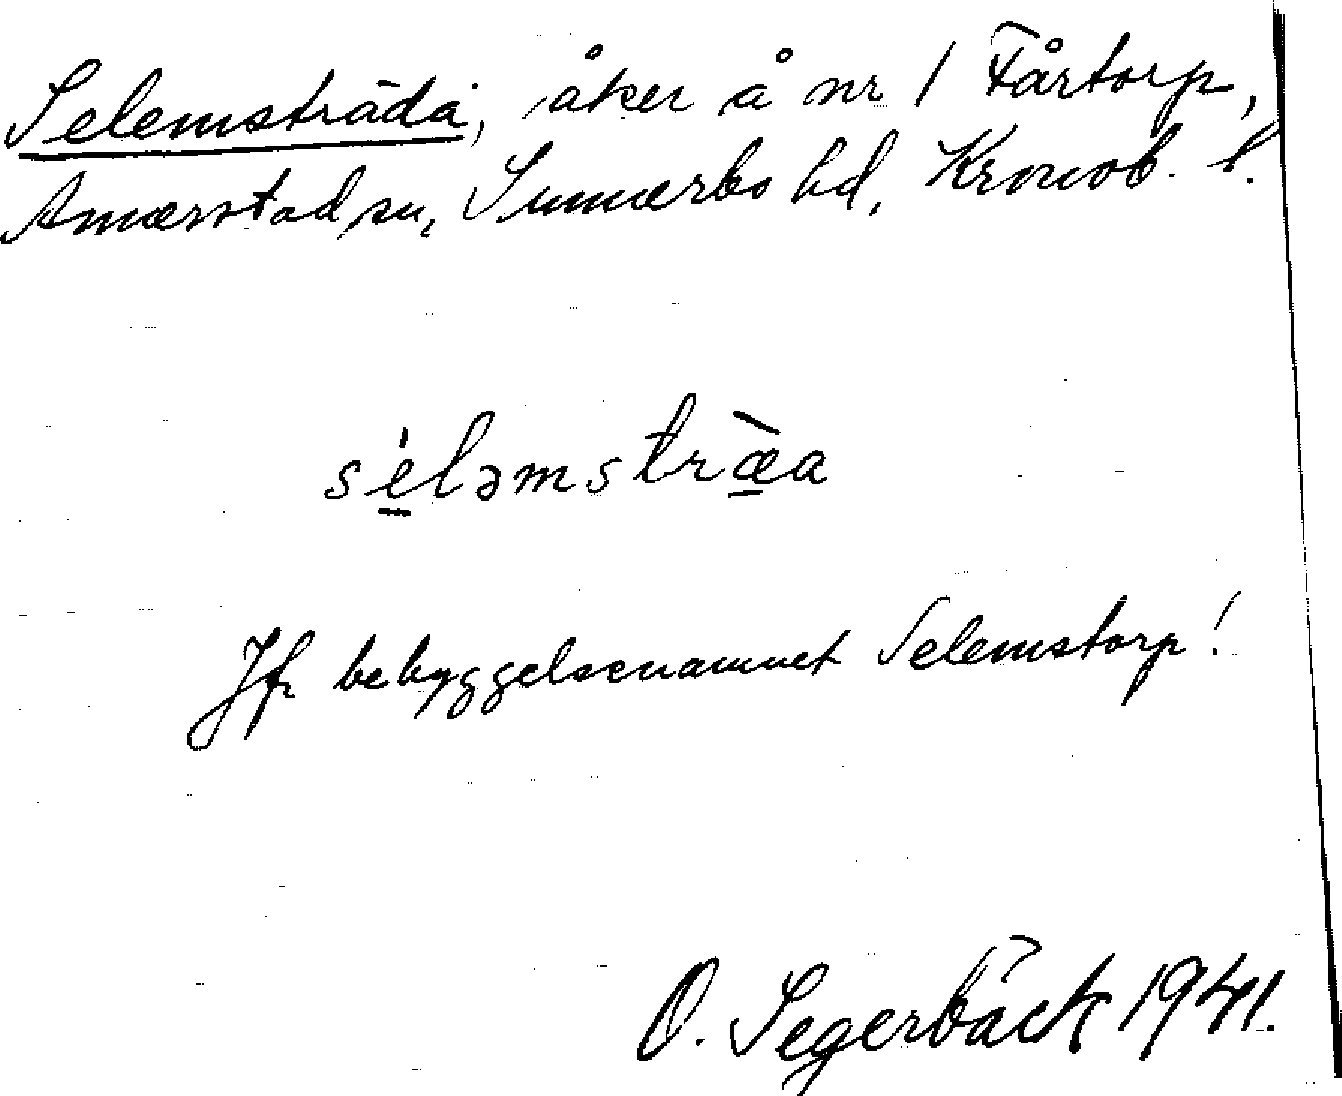 Selemsträda, åker å nr 1 Fårtorp,
Annerstad sn, Sunnerbo hd, Kronob. l.
sélǝmstræ̀a
Jfr bebyggelsenamnet Selemstorp!
O. Segerbäck 1941.